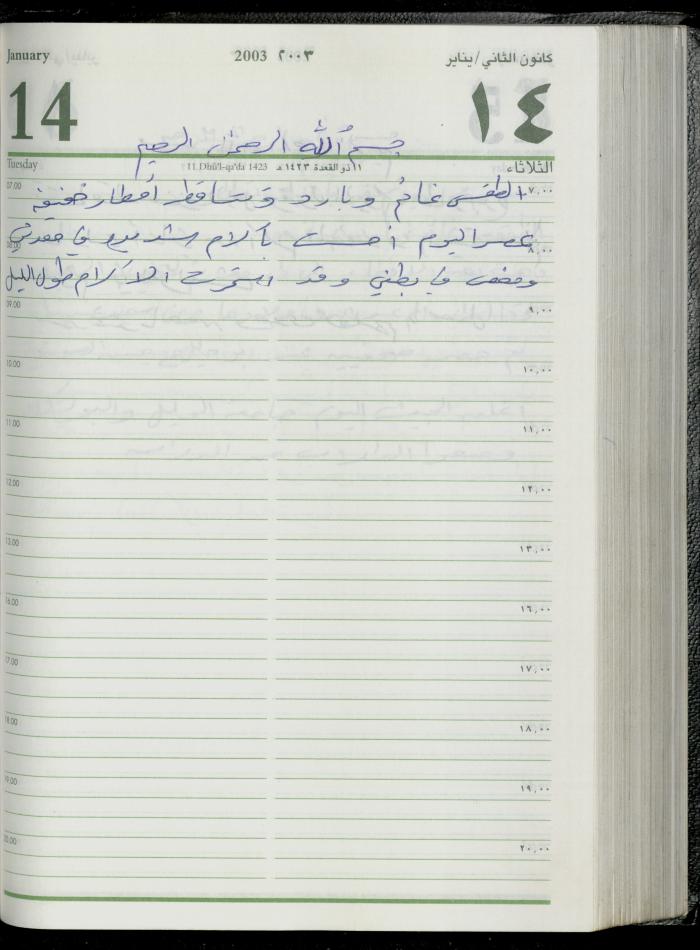 January 2003 ٢٠٠٣ كانون الثاني/يناير
14 ١٤
بسم الله الرحمن الرحيم
Tuesday 11 Dhū'l-qa'da 1423 ١١ ذو القعدة ١٤٢٣ هـ الثلاثاء
07.00 ٧,٠٠
الطقس غائم وبارد وتساقط أمطار خفيفة
عصر اليوم أحسست بآلام شديدة في معدتي
08.00 ٨,٠٠
ومغص في بطني وقد استمرت الآلام طول الليل
09.00 ٩,٠٠
10.00 ١٠,٠٠
11.00 ١١,٠٠
12.00 ١٢,٠٠
13.00 ١٣,٠٠
16.00 ١٦,٠٠
17.00 ١٧,٠٠
18.00 ١٨,٠٠
19.00 ١٩,٠٠
20.00 ٢٠,٠٠